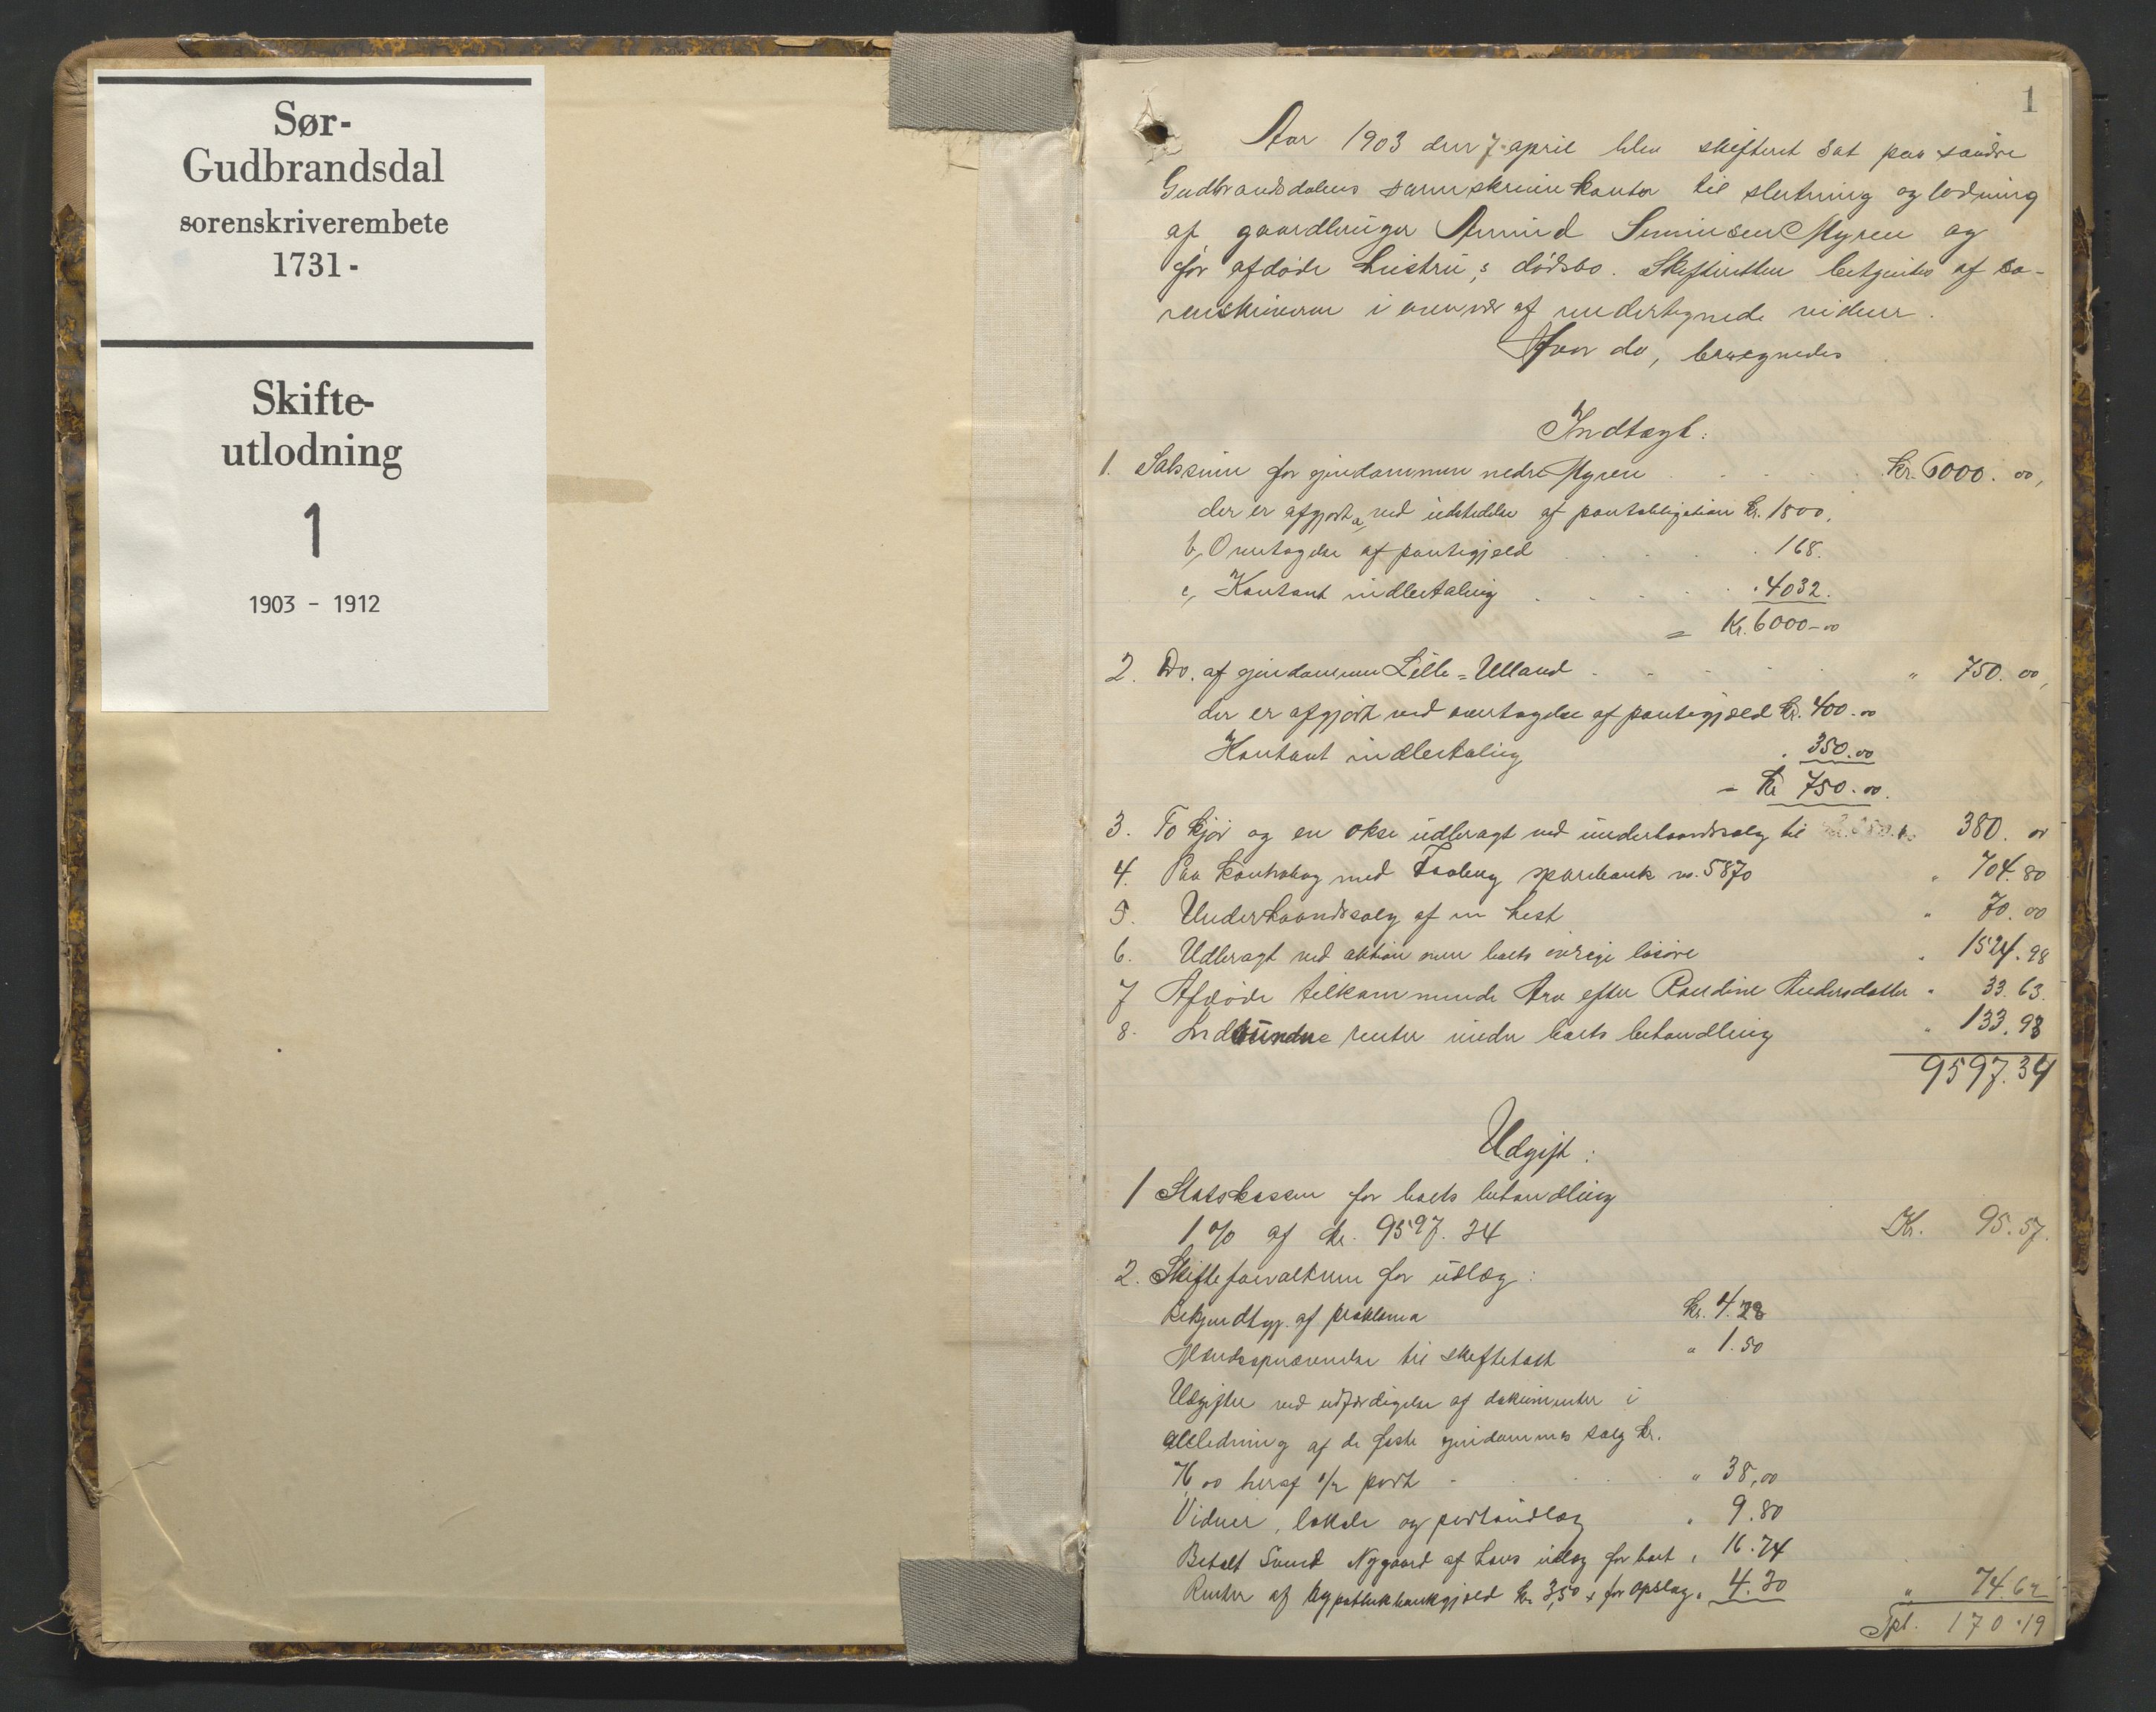 Sør-
Gudbrandsdal
sorenskriverembete
1731-
Skifte-
utlodning
1
1903 - 1912
1
Aar 1903 den 7 april blev skifteret sat paa søndre
Gudbrandsdalens sorenskriverkontor til slutning og lodning
af gaardbruger Amund Simensen Myren og
før afdøde hustru's dødsbo. Skifteretten betjentes af so-
renskriveren i overvær af undertegnede vidner.
Hvor da, beregnedes
Indtægt:
1. Salssum for eiendommen nedre Myren Kr. 6000.00,
der er afgjort a, ved udstedelse af pantobligation Kr. 1800,
b, Overtagelse af pantegjæld 168.
c, Kontant indbetaling 4032.
= Kr. 6000-00
2. Do. af eiendommen Lille-Ulland " 750.00,
der er afgjort ved overtagelse af pantegjæld Kr. 400.00
Kontant indbetaling 350.00
= Kr 750.00.
3. To kjør og en okse udbragt ved underhaandssalg til 380.00
4. Paa kontrabog med Faaberg sparebank no. 5870 " 704.80
5. Underhaandssalg af en hest " 70.00
6. Udbragt ved auktion over boets øvrige løsøre " 1524.98
7 Afdøde tilkommende Arv efter Randine Andersdatter " 33.63.
8. Indvundne renter under boets behandling " 133.93
9597.34
Udgift:
1 Statskassen for boets behandling
1% af kr. 9597.34 Kr. 95.57.
2. Skifteforvalteren for udlæg:
Bekjendtgj. af proklama kr. 4.28
Mændsopnævnelse til skiftetaxt " 1.50
Udgifter ved udfærdigelse af dokumenter i
anledning af de faste eiendommes salg kr.
76,00 heraf 1/2 part " 38,00
Vidner, lokale og portoudlæg " 9.80
Betalt Svend Nygaard af hans udlæg for boet " 16.74
Renter af hypothekbankgjæld kr. 3,50 + for opslag " 4.30 " 74.62
Tpt. 170.19